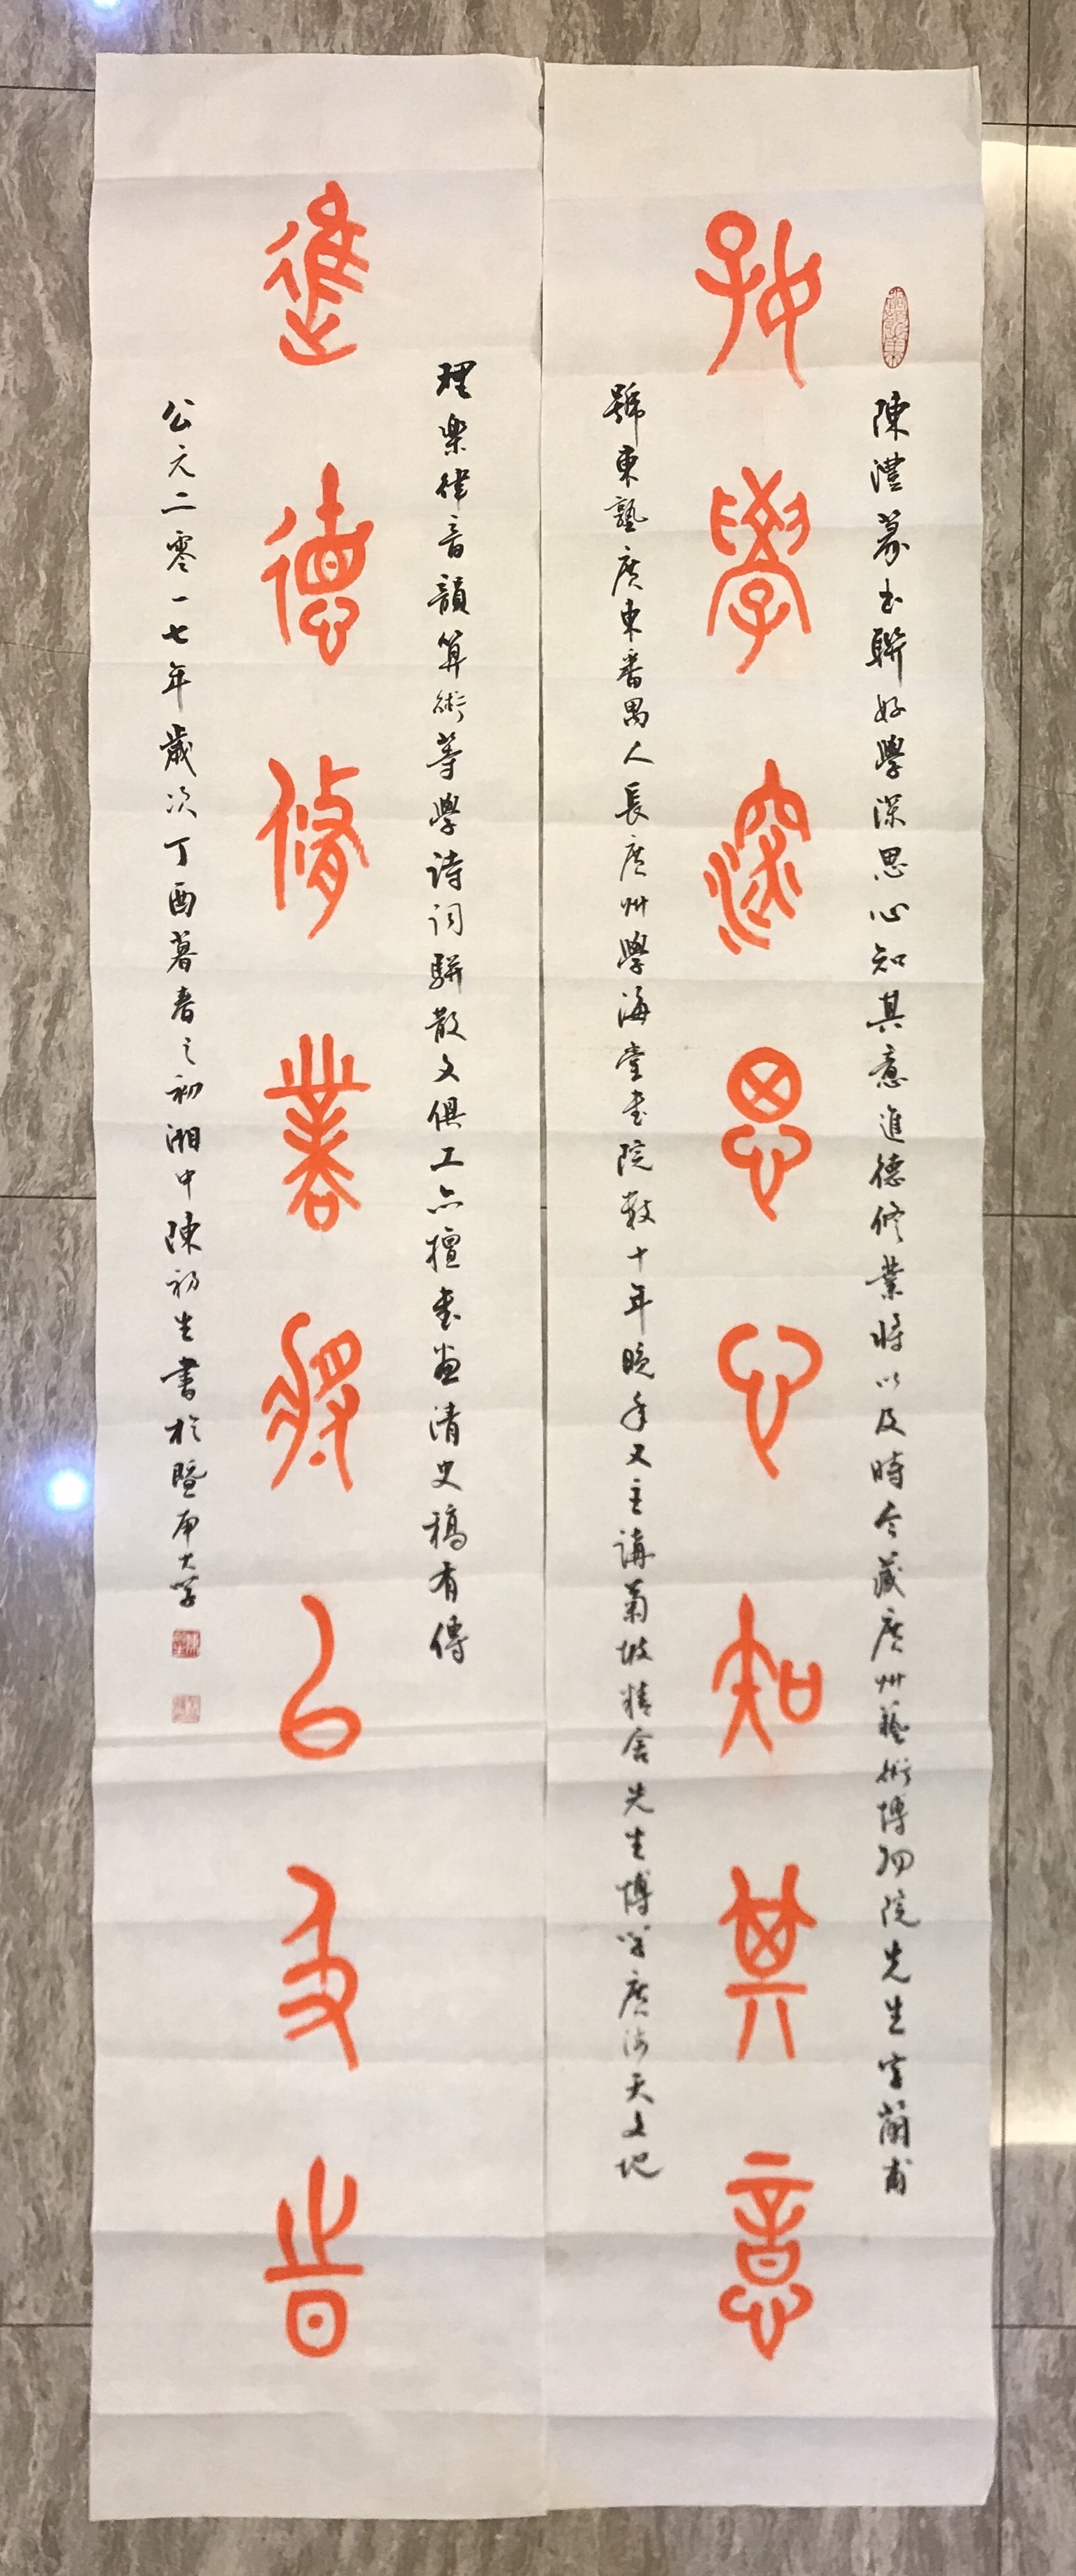 陳澧篆書聯好學深思心知其意進德修業將以及時今藏廣州藝術博物院先生字蘭甫
好學深思心知其意
號東塾廣東番禺人長廣州學海堂書院數十年晚年又主講菊坡精舍先生博學廣涉天文地
理樂律音韻算術等學詩詞駢散文俱工亦擅書畫清史稿有傳
進德修業將以及時
公元二零一七年歲次丁酉暮春之初湘中陳初生書於暨南大學